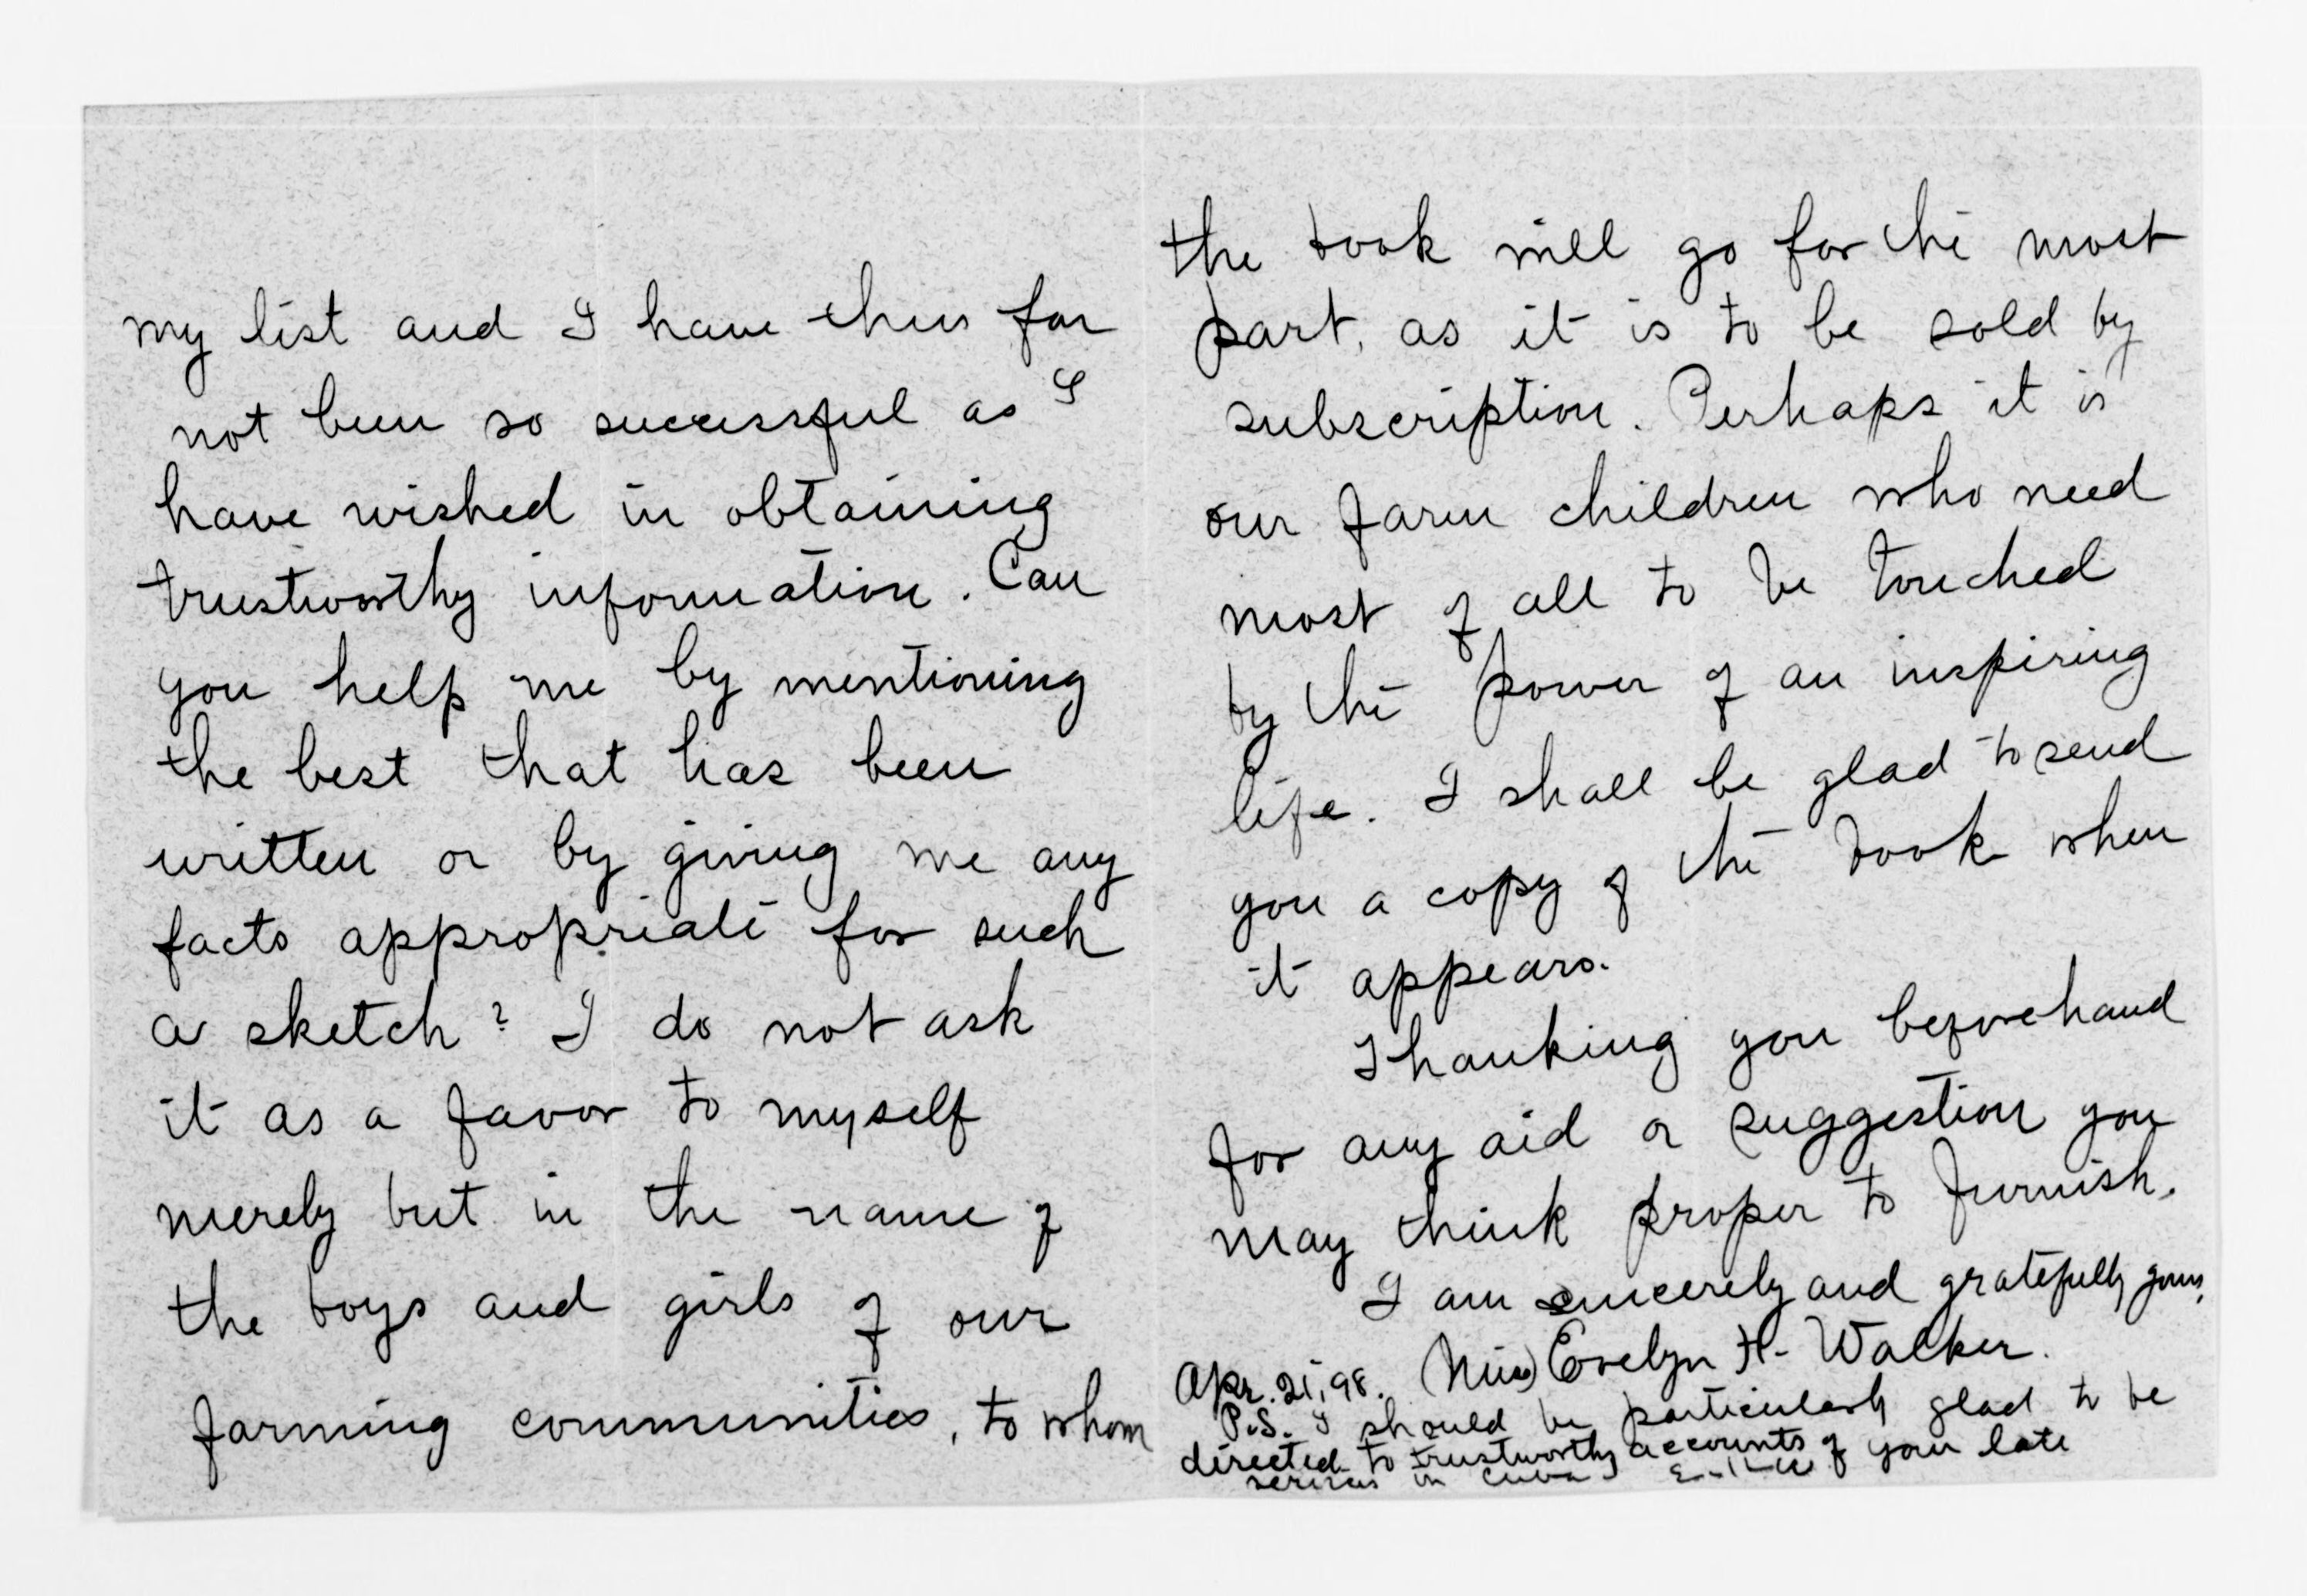 my list and I have thus far
not been so successful as I
have wished in obtaining
trustworthy information. Can
you help me by mentioning
the best that has been
written or by giving me any
facts appropriate for such
a sketch? I do not ask
it as a favor to myself
merely but in the name of
the boys and girls of our
farming communities, to whom
the book will go for the most
part, as it is to be sold by
subscription. Perhaps it is
our farm children who need
most of all to be touched
by the power of an inspiring
life. I shall be glad to send
you a copy of the book when
it appears.
Thanking you beforehand
for any aid or suggestion you
may think proper to furnish,
I am sincerely and gratefully yours,
(Miss) Evelyn H. Walker.
Apr. 21, 98.
P.S. I should be particularly glad to be
directed to trustworthy accounts of your late
services in Cuba E. H. W.